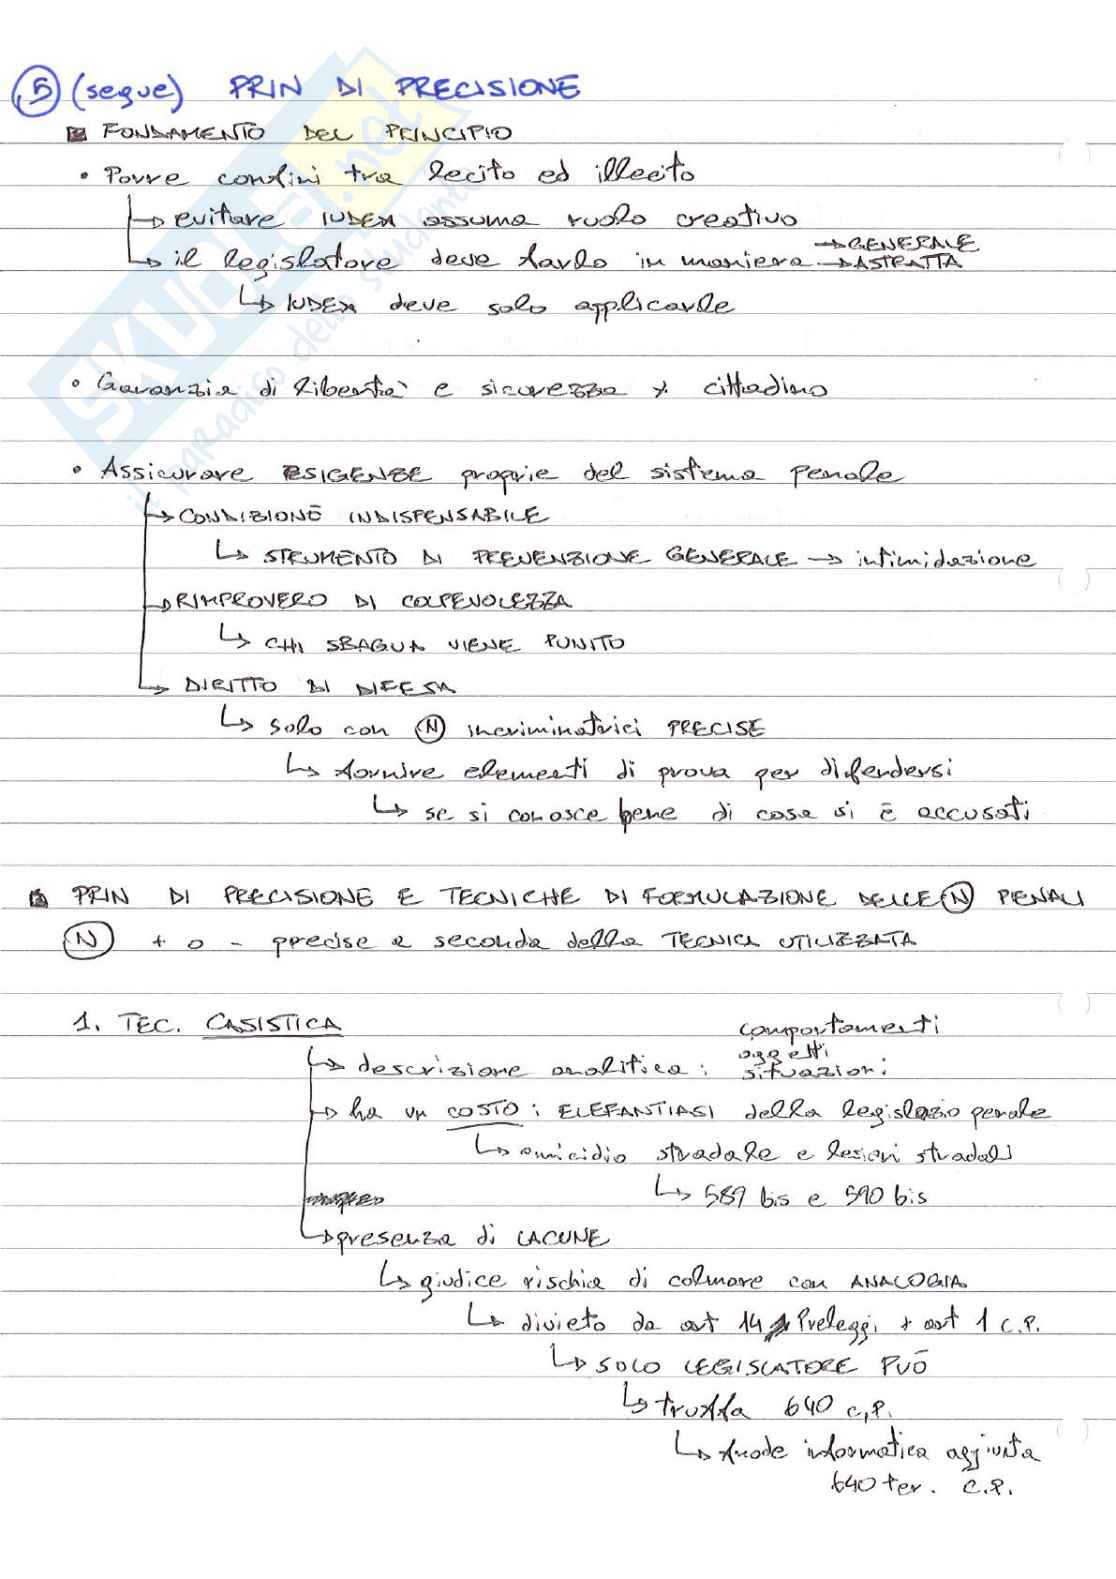 5 (segue) PRIN DI PRECISIONE
FONDAMENTO DEL PRINCIPIO
• Porre confini tra lecito ed illecito
↳ evitare IUDEX assuma ruolo creativo
↳ il legislatore deve farlo in maniera → GENERALE
→ ASTRATTA
↳ IUDEX deve solo applicarle
• Garanzia di libertà e sicurezza x cittadino
• Assicurare ESIGENZE proprie del sistema penale
↳ CONDIZIONE INDISPENSABILE
↳ STRUMENTO DI PREVENZIONE GENERALE → intimidazione
→ RIMPROVERO DI COLPEVOLEZZA
↳ CHI SBAGLIA VIENE PUNITO
↳ DIRITTO DI DIFESA
↳ solo con N incriminatrici PRECISE
↳ fornire elementi di prova per difendersi
↳ se si conosce bene di cosa si è accusati
PRIN DI PRECISIONE E TECNICHE DI FORMULAZIONE DELLE N PENALI
N + o - precise a seconda della TECNICA UTILIZZATA
1. TEC. CASISTICA
↳ descrizione analitica: comportamenti
oggetti
situazioni
→ ha un COSTO: ELEFANTIASI della legislazio penale
↳ omicidio stradale e lesioni stradali
↳ 589 bis e 590 bis
↳ presenza di LACUNE
↳ giudice rischia di colmare con ANALOGIA
↳ divieto da art 14 Preleggi + art 1 C.P.
↳ SOLO LEGISLATORE PUÒ
↳ truffa 640 c.p.
↳ frode informatica aggiunta
640 ter. C.P.
SKUOLA.net
il paradiso dello studente